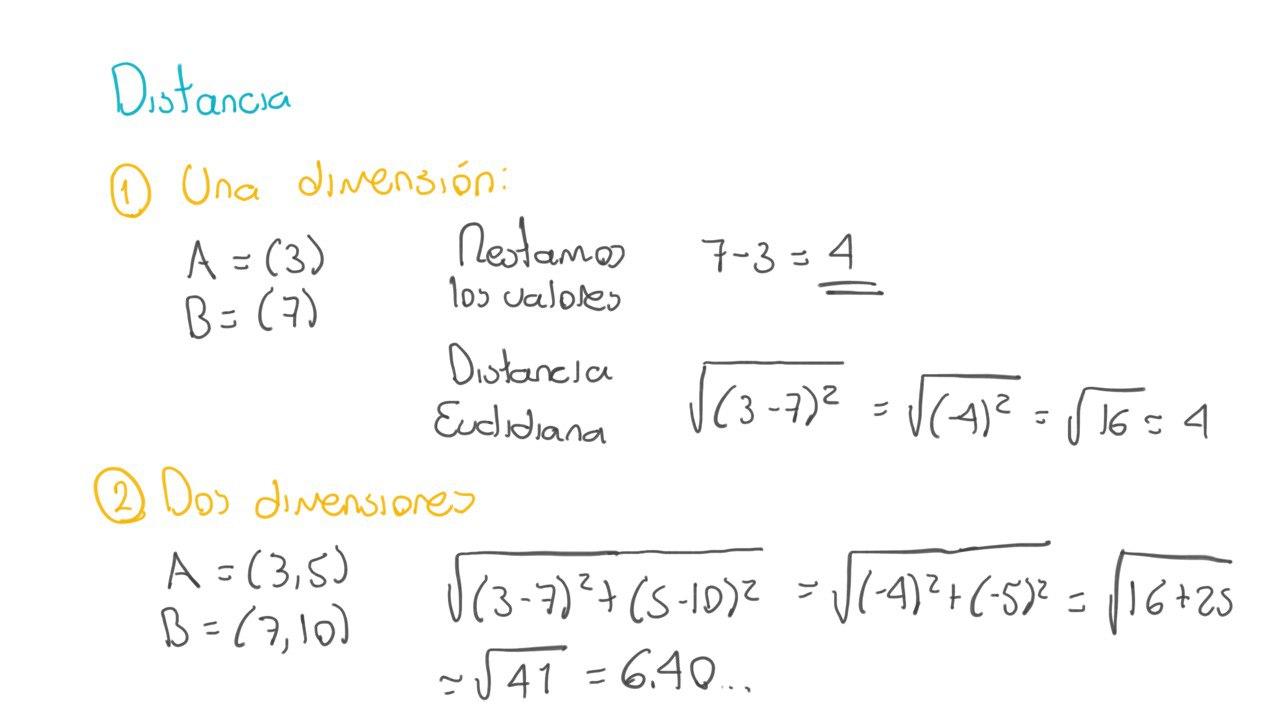 Distancia
① Una dimensión:
A = (3)
B = (7)
Restamos
los valores
7-3 = 4
Distancia
Euclidiana
√(3-7)² = √(-4)² = √16 = 4
② Dos dimensiones
A = (3,5)
B = (7,10)
√(3-7)²+(5-10)² = √(-4)²+(-5)² = √16+25
≈ √41 = 6.40...